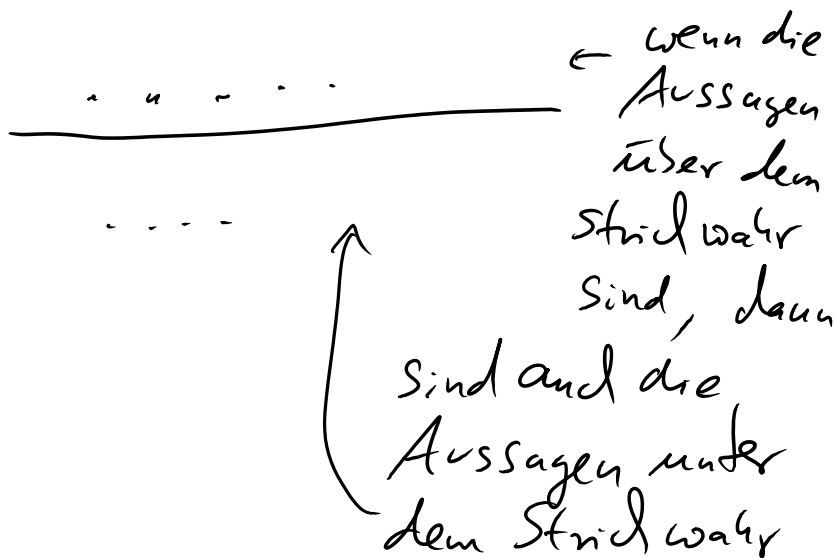 ← wenn die
Aussagen
über dem
Strich wahr
sind, dann
sind auch die
Aussagen unter
dem Strich wahr